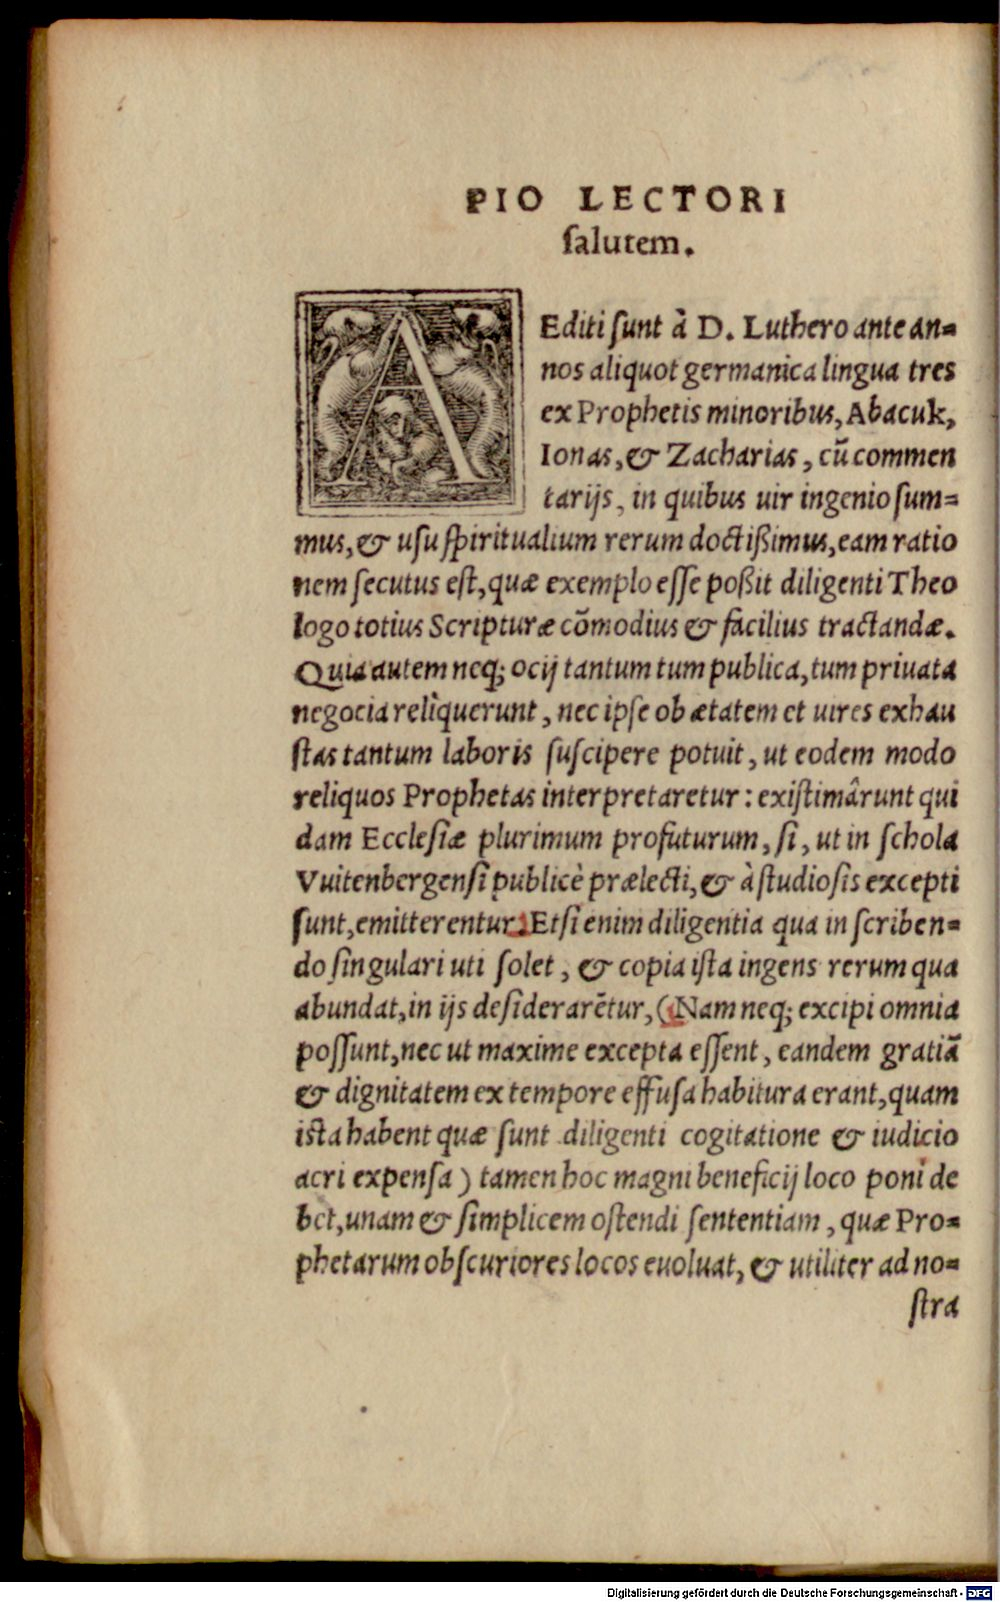 PIO LECTORI
salutem.
AEditi sunt à D. Luthero ante an=
nos aliquot germanica lingua tres
ex Prophetis minoribus, Abacuk,
Ionas, & Zacharias, cū commen
tarijs, in quibus uir ingenio sum=
mus, & usu spiritualium rerum doctißimus, eam ratio
nem secutus est, quæ exemplo esse poßit diligenti Theo
logo totius Scripturæ cōmodius & facilius tractandæ.
Quia autem neq; ocij tantum tum publica, tum priuata
negocia reliquerunt, nec ipse ob ætatem et uires exhau
stas tantum laboris suscipere potuit, ut eodem modo
reliquos Prophetas interpretaretur: existimârunt qui
dam Ecclesiæ plurimum profuturum, si, ut in schola
Vuitenbergensi publicè prælecti, & à studiosis excepti
sunt, emitterentur. Etsi enim diligentia qua in scriben=
do singulari uti solet, & copia ista ingens rerum qua
abundat, in ijs desiderarētur, (Nam neq; excipi omnia
possunt, nec ut maxime excepta essent, eandem gratiā
& dignitatem ex tempore effusa habitura erant, quam
ista habent quæ sunt diligenti cogitatione & iudicio
acri expensa) tamen hoc magni beneficij loco poni de
bet, unam & simplicem ostendi sententiam, quæ Pro=
phetarum obscuriores locos euoluat, & utiliter ad no=
stra
Digitalisierung gefördert durch die Deutsche Forschungsgemeinschaft - DFG